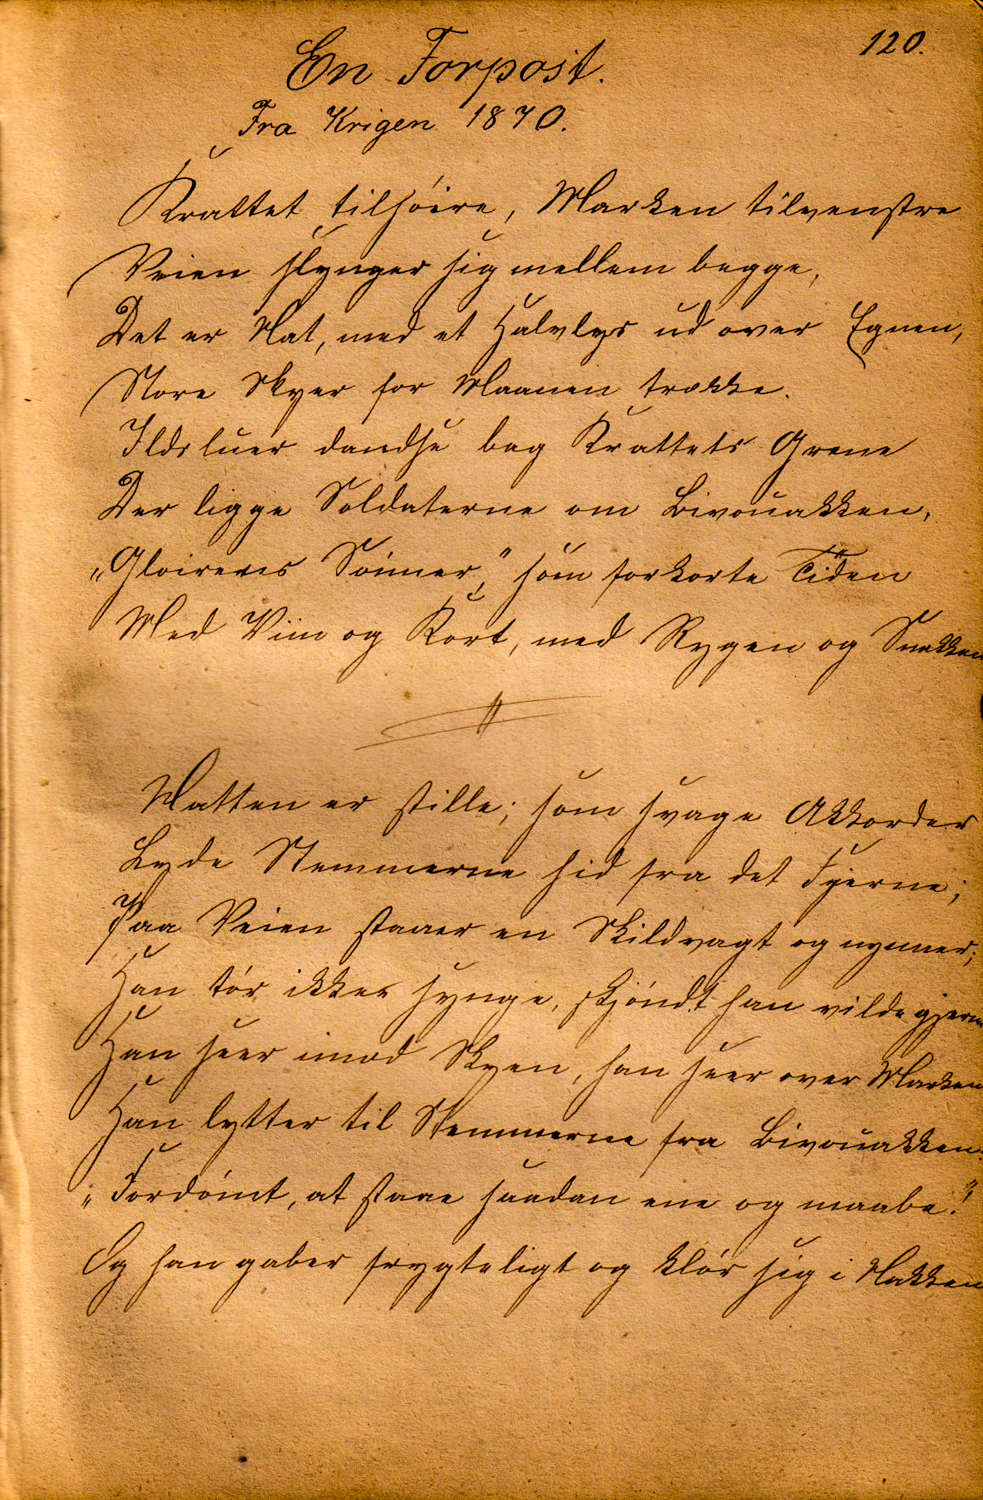 120.
En Forpost.
Fra Krigen 1870.
Krattet tilhøire, Marken tilvenstre
Veien slynger sig mellem begge,
Det er Nat, med et Halvlys ud over Egnen,
Store Skyer for Maanen trække.
Ildsluer dandse bag Krattets Grene
Der ligge Soldaterne om Bivouakken,
„Gloirens Sønner," som forkorte Tiden
Med Viin og Kort, med Rygen og Snakken
Natten er stille; som svage Akkorder
Lyde Stemmerne hid fra det Fjerne;
Paa Veien staaer en Skildvagt og nynner;
Han tør ikke synge, skjøndt han vilde gjerne
Han seer imod Skyen, han seer over Marken
Han lytter til Stemmerne fra Bivouakken:
„Fordømt, at staae saadan ene og maabe!"
Og han gaber frygteligt og klør sig i Nakken